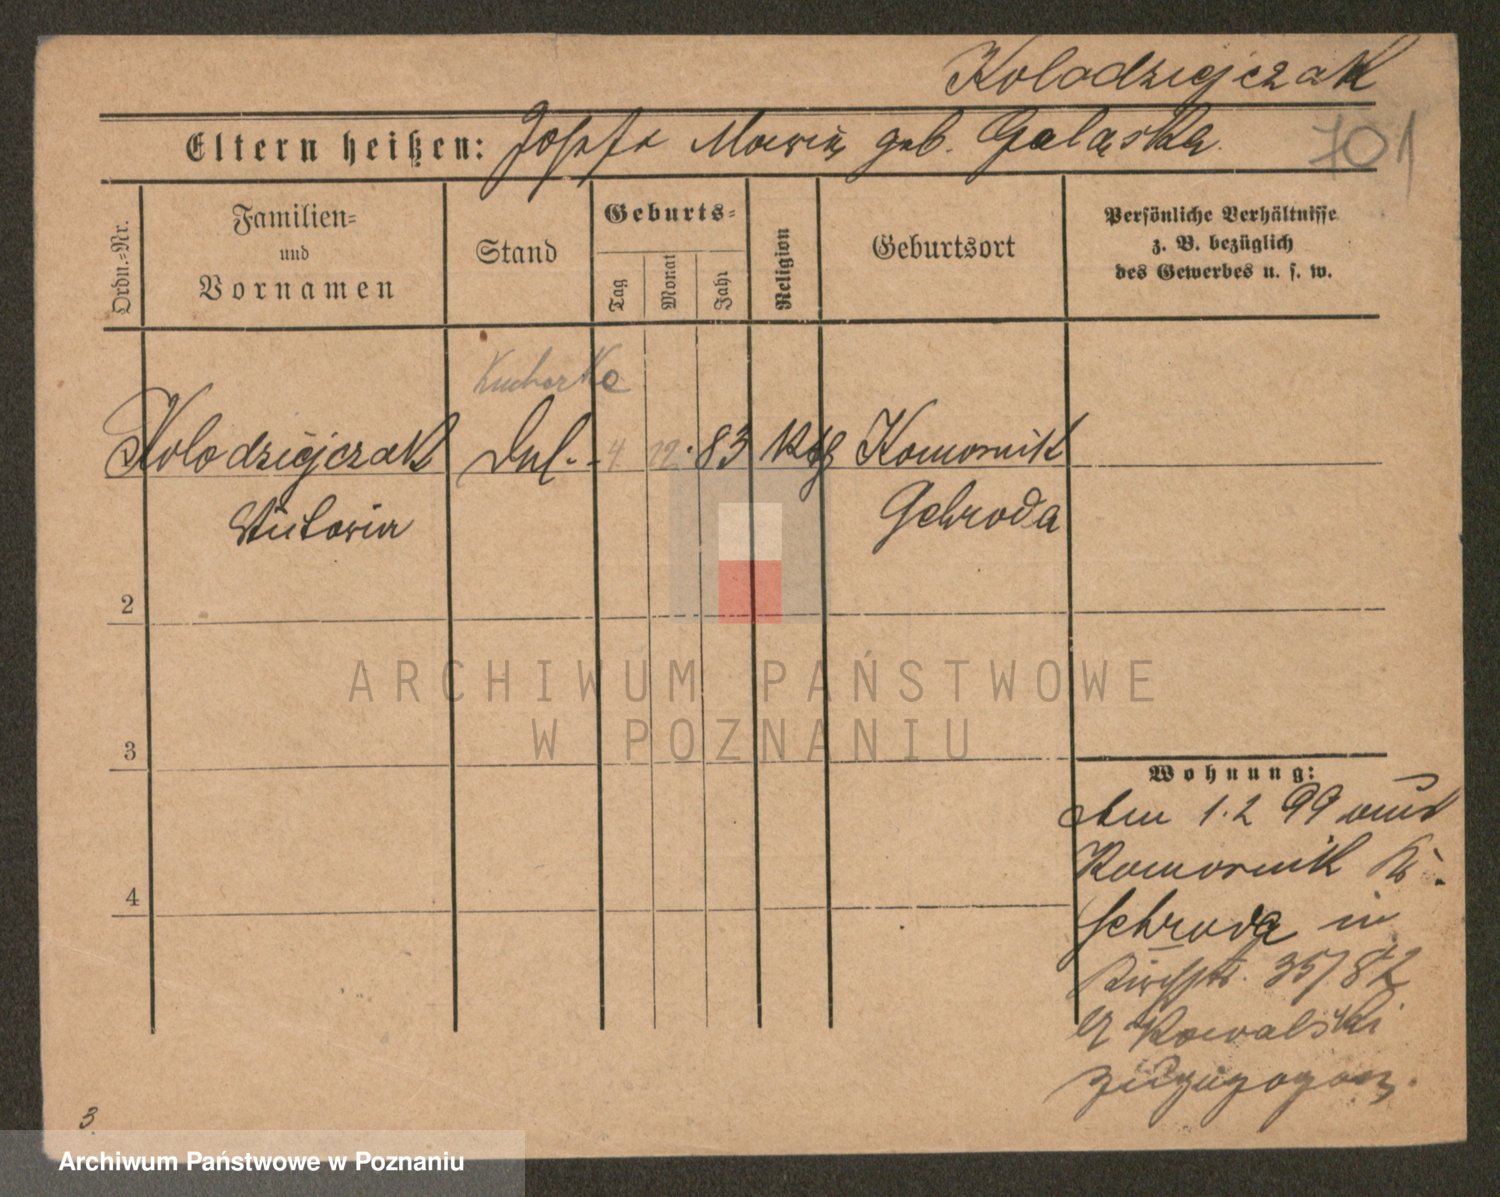 Kolodziejczak
Eltern heißen: Josefa Maria geb. Galaska.
701
Ordn.-Nr.
Familien-
und
Vornamen
Stand
Geburts-
Tag
Monat
Jahr
Religion
Geburtsort
Persönliche Verhältnisse
z. B. bezüglich
des Gewerbes u. s. w.
Kucharka
Kolodziejczak 4 12. 83 Kth Komornik
Victoria Schroda
2
3
4
Wohnung:
Am 1.2 99 aus
Komornik Kr.
Schroda in
35/82
Kowalski
zugezogen.
3.
ARCHIWUM PAŃSTWOWE
W POZNANIU
Archiwum Państwowe w Poznaniu